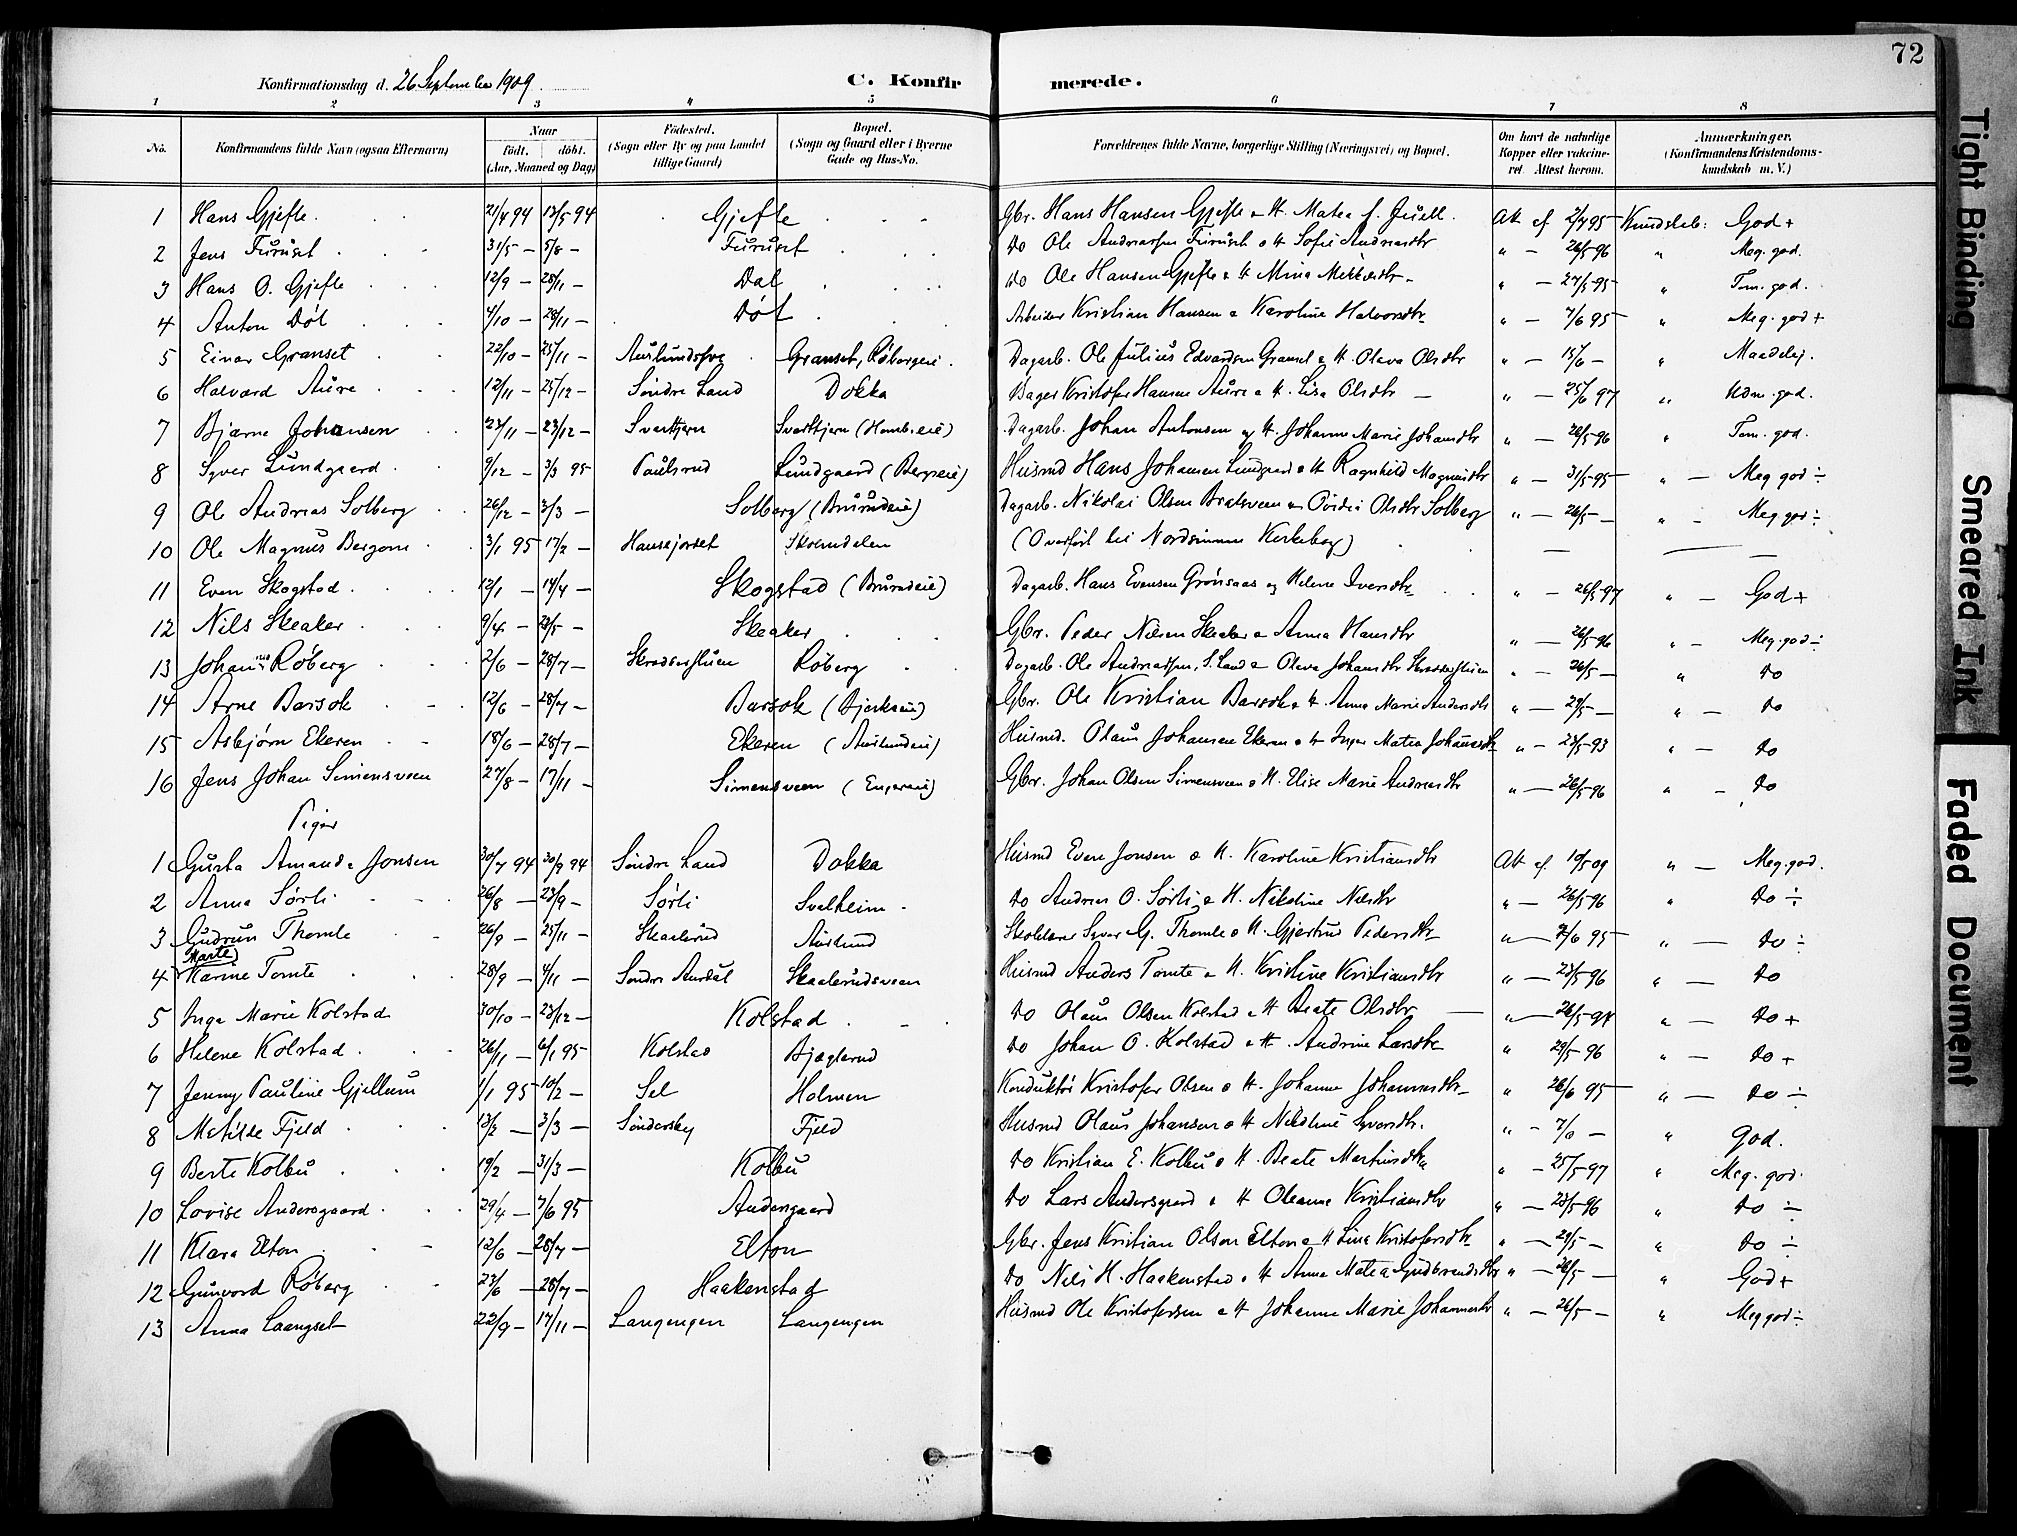 72
Konfirmationsdag d. 26 September 1909 C. Konfirmerede.
1 2 3 4 5 6 7 8
No. Konfirmandens fulde Navn (ogsaa Efternavn) Naar født, døbt. (Aar, Maaned og Dag) Födested. (Sogn eller By og paa Landet tillige Gaard) Bopæl. (Sogn og Gaard eller i Byerne Gade og Hus-No. Forældrenes fulde Navne, borgerlige Stilling (Næringsvei) og Bopæl. Om havt de naturlige Kopper eller vakcineret. Attest herom. Anmærkninger. (Konfirmandens Kristendomskundskab m. V.)
1 Hans Gjefle 21/4 94 13/5 94 Gjefle Gbr. Hans Hansen Gjefle & H. Matea f. Juell. Att. af 2/7 95 Kundskab: God +
2 Jens Furuset 31/5 — 5/8 — Furuset Do Ole Andreassen Furuset & H Sofie Andreasdtr " — 26/5 96 " Meg. god.
3 Hans O. Gjefle 12/9 — 28/11 — Dal Do Ole Hansen Gjefle & H Mina Mikkelsdtr " — 27/5 95 " Tem. god.
4 Anton Døl 4/10 — 28/11 — Døl Arbeider Kristian Hansen & Karoline Halvorsdtr " — 7/6 95 " Meg. god +
5 Einar Granset 22/10 — 25/11 — Granset, Røbergeie. Dagarb. Ole Julius Edvardsen Granset & H. Oleva Olsdtr " — 15/6 — " Maadelig.
6 Halvard Aure 12/11 — 25/12 — Søndre Land Dokka Bager Kristofer Hansen Aure & H. Lisa Olsdtr — " — 25/6 97 " Udm. god.
7 Bjarne Johansen 23/11 — 23/12 — Svartjern Svartjern Dagarb. Johan Antonsen og H. Johanne Marie Johansdtr " — 26/5 96 " Tem. god.
8 Syver Lundgaard 9/12 — 3/3 95 Paulsrud Lundgaard (Bergseie) Husmd Hans Johansen Lundgaard & H Ragnhild Magnusdtr " — 31/5 95 " — Meg god ÷
9 Ole Andreas Solberg 26/12 — 3/3 — Solberg (Brurudeie) Dagarb. Nikolai Olsen Bratsveen Olsdtr Solberg " — 26/5 — " — Meg god ÷
10 Ole Magnus Bergom 3/1 95 17/2 — (Overført til Nordsinnen Kirkebog) — —
11 Even Skogstad 12/1 — 14/4 — Skogstad (Brurudeie) Dagarb. Hans Evensen Grønsaas og Helene Iversdtr " — 26/5 97 " — God +
12 Nils Skeaker 9/4 — 28/5 — Skeaker Gbr. Peder Nilsen Skeaker & Anna Hansdtr " — 26/5 96 " — Meg. god ÷
13 Johannes Røberg 2/6 — 28/7 — Røberg Dagarb. Ole Andreassen, S. Land & Oleva Johansdtr " — 26/5 — " Do
14 Arne Barsok 12/6 — 28/7 — Barsok Gbr. Ole Kristian Barsok & H. Anna Marie Andersdtr " — 29/5 — " — Do
15 Asbjørn Ekeren 18/6 — 28/7 — Ekeren (Auslundeie) Husmd. Olaus Johansen Ekeren & H Inger Matea Johannesdtr " — 23/5 93 " — Do
16 Jens Johan Simensveen 27/8 — 17/11 — Simensveen Gbr. Johan Olsen Simensveen & H. Elise Marie Andreasdtr " — 26/5 96 " — Do
Piger
1 Gusta Amanda Jonsen 30/7 94 30/9 94 Søndre Land Dokka Husmd Even Jonsen & H. Karoline Kristiansdtr Att. af 10/5 09 " — Meg. god.
2 Anna Sørli 26/8 — 23/9 — Sørli Svalheim Do Andreas O. Sørli & H. Nikoline Nilsdtr " — 26/5 96 " Do ÷
3 Gudrun Thomle 26/9 — 25/11 — Skaelerud Auslund Skolelærer Syver G. Thomle & H. Gjertrud Pedersdtr " — 2/6 95 " — Do ÷
Marte
4 Karine Tomte 28/9 — 4/11 — Søndre Aurdal Skaelerudsveen Husmd Anders Tomte & H. Kristine Kristiansdtr " — 23/5 96 " — Do
5 Inga Marie Kolstad 30/10 — 23/12 — Kolstad Do Olaus Olsen Kolstad & H Beate Olsdtr — " — 26/5 97 " — Do +
6 Helene Kolstad 26/11 — 6/1 95 Kolstad Bjøglerud Do Johan O. Kolstad & H. Andrine Larsdtr " 29/5 96 " — Do +
7 Jenny Pauline Gjellum 1/1 95 10/2 — Sel Holmen Konduktør Kristofer Olsen & H. Johanne Johannesdtr " 26/6 95 " — Do ÷
8 Matilde Fjeld 13/2 — 3/3 — Sønderby Fjeld Husmd Olaus Johansen & H Nikoline Syversdtr. " — 7/6 — " God.
9 Berte Kolbu 19/2 — 31/3 — Kolbu Do Kristian E. Kolbu & H. Beate Martinsdtr " — 25/5 97 " Meg. god.
10 Lovise Andersgaard 29/4 — 7/6 95 Andersgaard Do Lars Andersgaard & H Oleanna Kristiansdtr " — 23/5 96 " Do ÷
11 Klara Elton 12/6 — 28/7 — Elton Gbr. Jens Kristian Olson Elton & H Lina Kristofersdtr " — 29/5 — " Do ÷
12 Gunvord Røberg 23/6 — 28/7 — Haakenstad Do Nils H. Haakenstad & H Anna Matea Gudbrandsdtr " — 26/5 — " God +
13 Anna Laangset 22/9 — 17/11 — Langengen Langengen Husmd Ole Kristofersen & H Johanne Marie Johannesdtr " — 26/5 — " Meg god ÷
Tight Binding
Smeared Ink
Faded Document